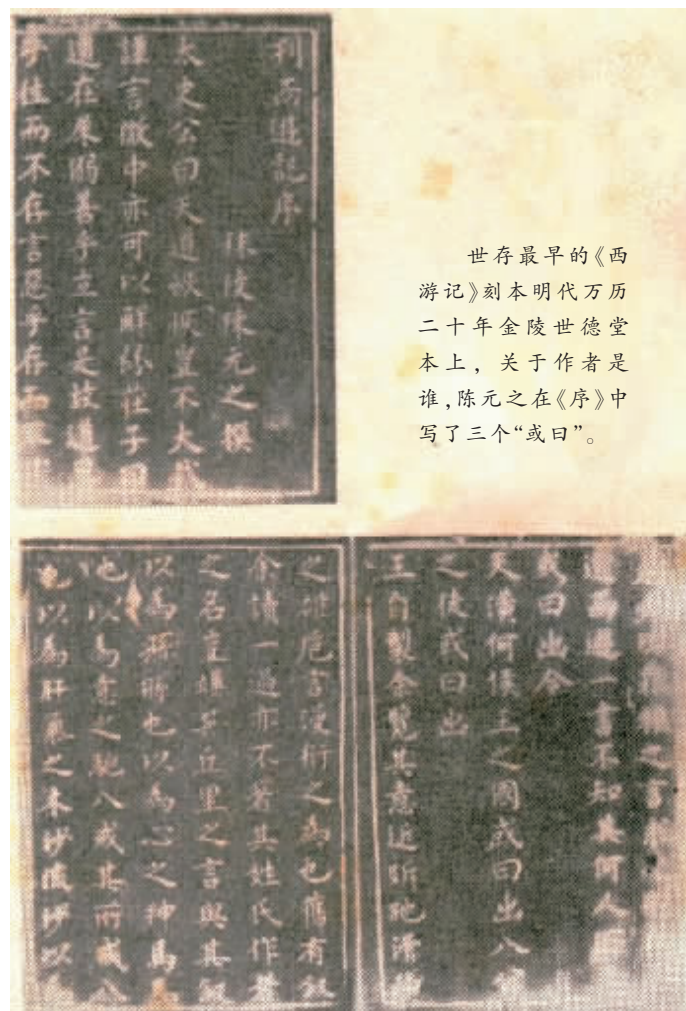 刊西遊記序
秣陵陳元之撰
太史公曰天道恢恢豈不大哉
譚言微中亦可以解紛莊子曰
道在屎溺善乎立言是故道
乎往而不存言惡乎存而
世存最早的《西
游记》刻本明代万历
二十年金陵世德堂
本上，关于作者是
谁，陈元之在《序》中
写了三个“或曰”。
之言
遺西遊一書不知其何人
或曰出今
天潢何侯王之國或曰出八
之徒或曰出
王自製余覽其意近跅弛滑稽
之雄卮言漫衍之為也舊有敘
余讀一過亦不著其姓氏作者
之名豈嫌其丘里之言與其敘
以為猻猻也以為心之神馬馬
也以為意之馳八戒其所戒八
也以為肝氣之木沙流沙以為